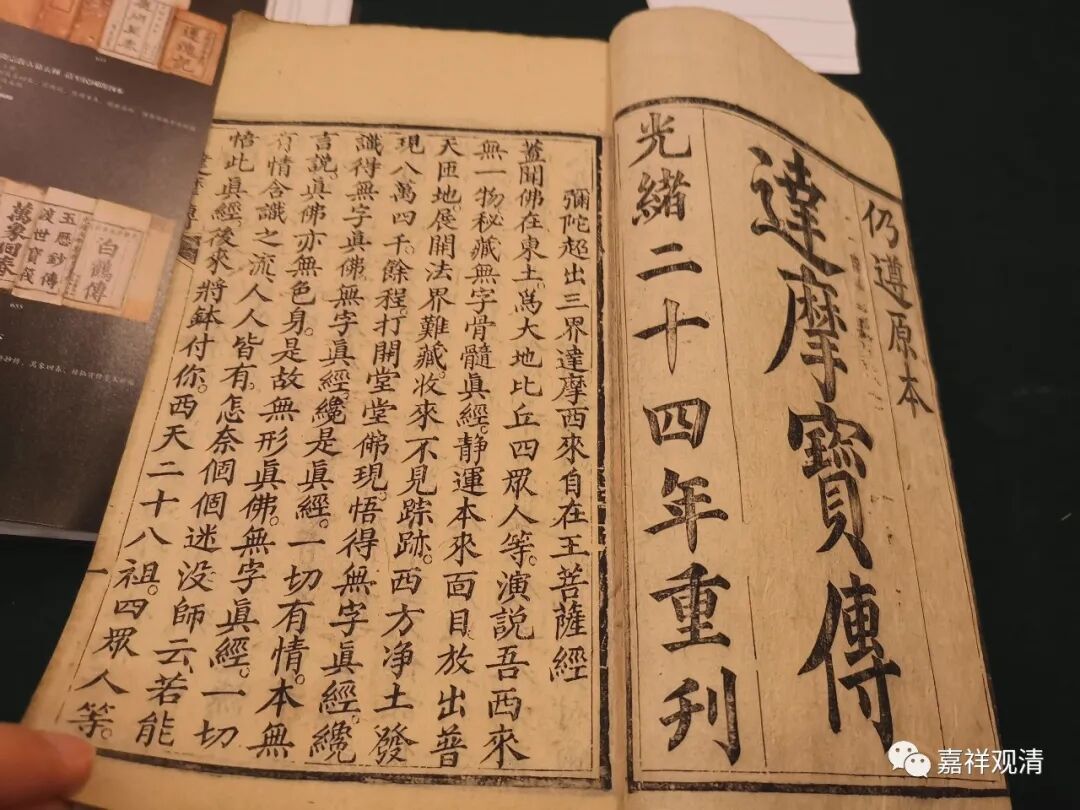 仍遵原本
達摩寶傳
光緒二十四年重刊
彌陀超出三界達摩西來自在王菩薩經
蓋聞佛在東土。爲大地比丘四眾人等。演說吾西來
無一物秘藏無字骨髓眞經。静運本來面目放出普
天匝地展開法界難藏。收來不見踪跡。西方净土發
現八萬四千。餘程。打開堂堂佛現。悟得無字眞經。纔
識得無字眞佛。無字眞經。纔是眞經。一切有情。本無
言說。眞佛亦無色身。是故無形眞佛。無字眞經。一切
有情含識之流。人人皆有。怎奈個個迷没師云。若能
悟此眞經。後來將鉢付你。西天二十八祖。四眾人等。
一
白鶴傳
渡世寶筏
萬家回春
655
嘉祥观清